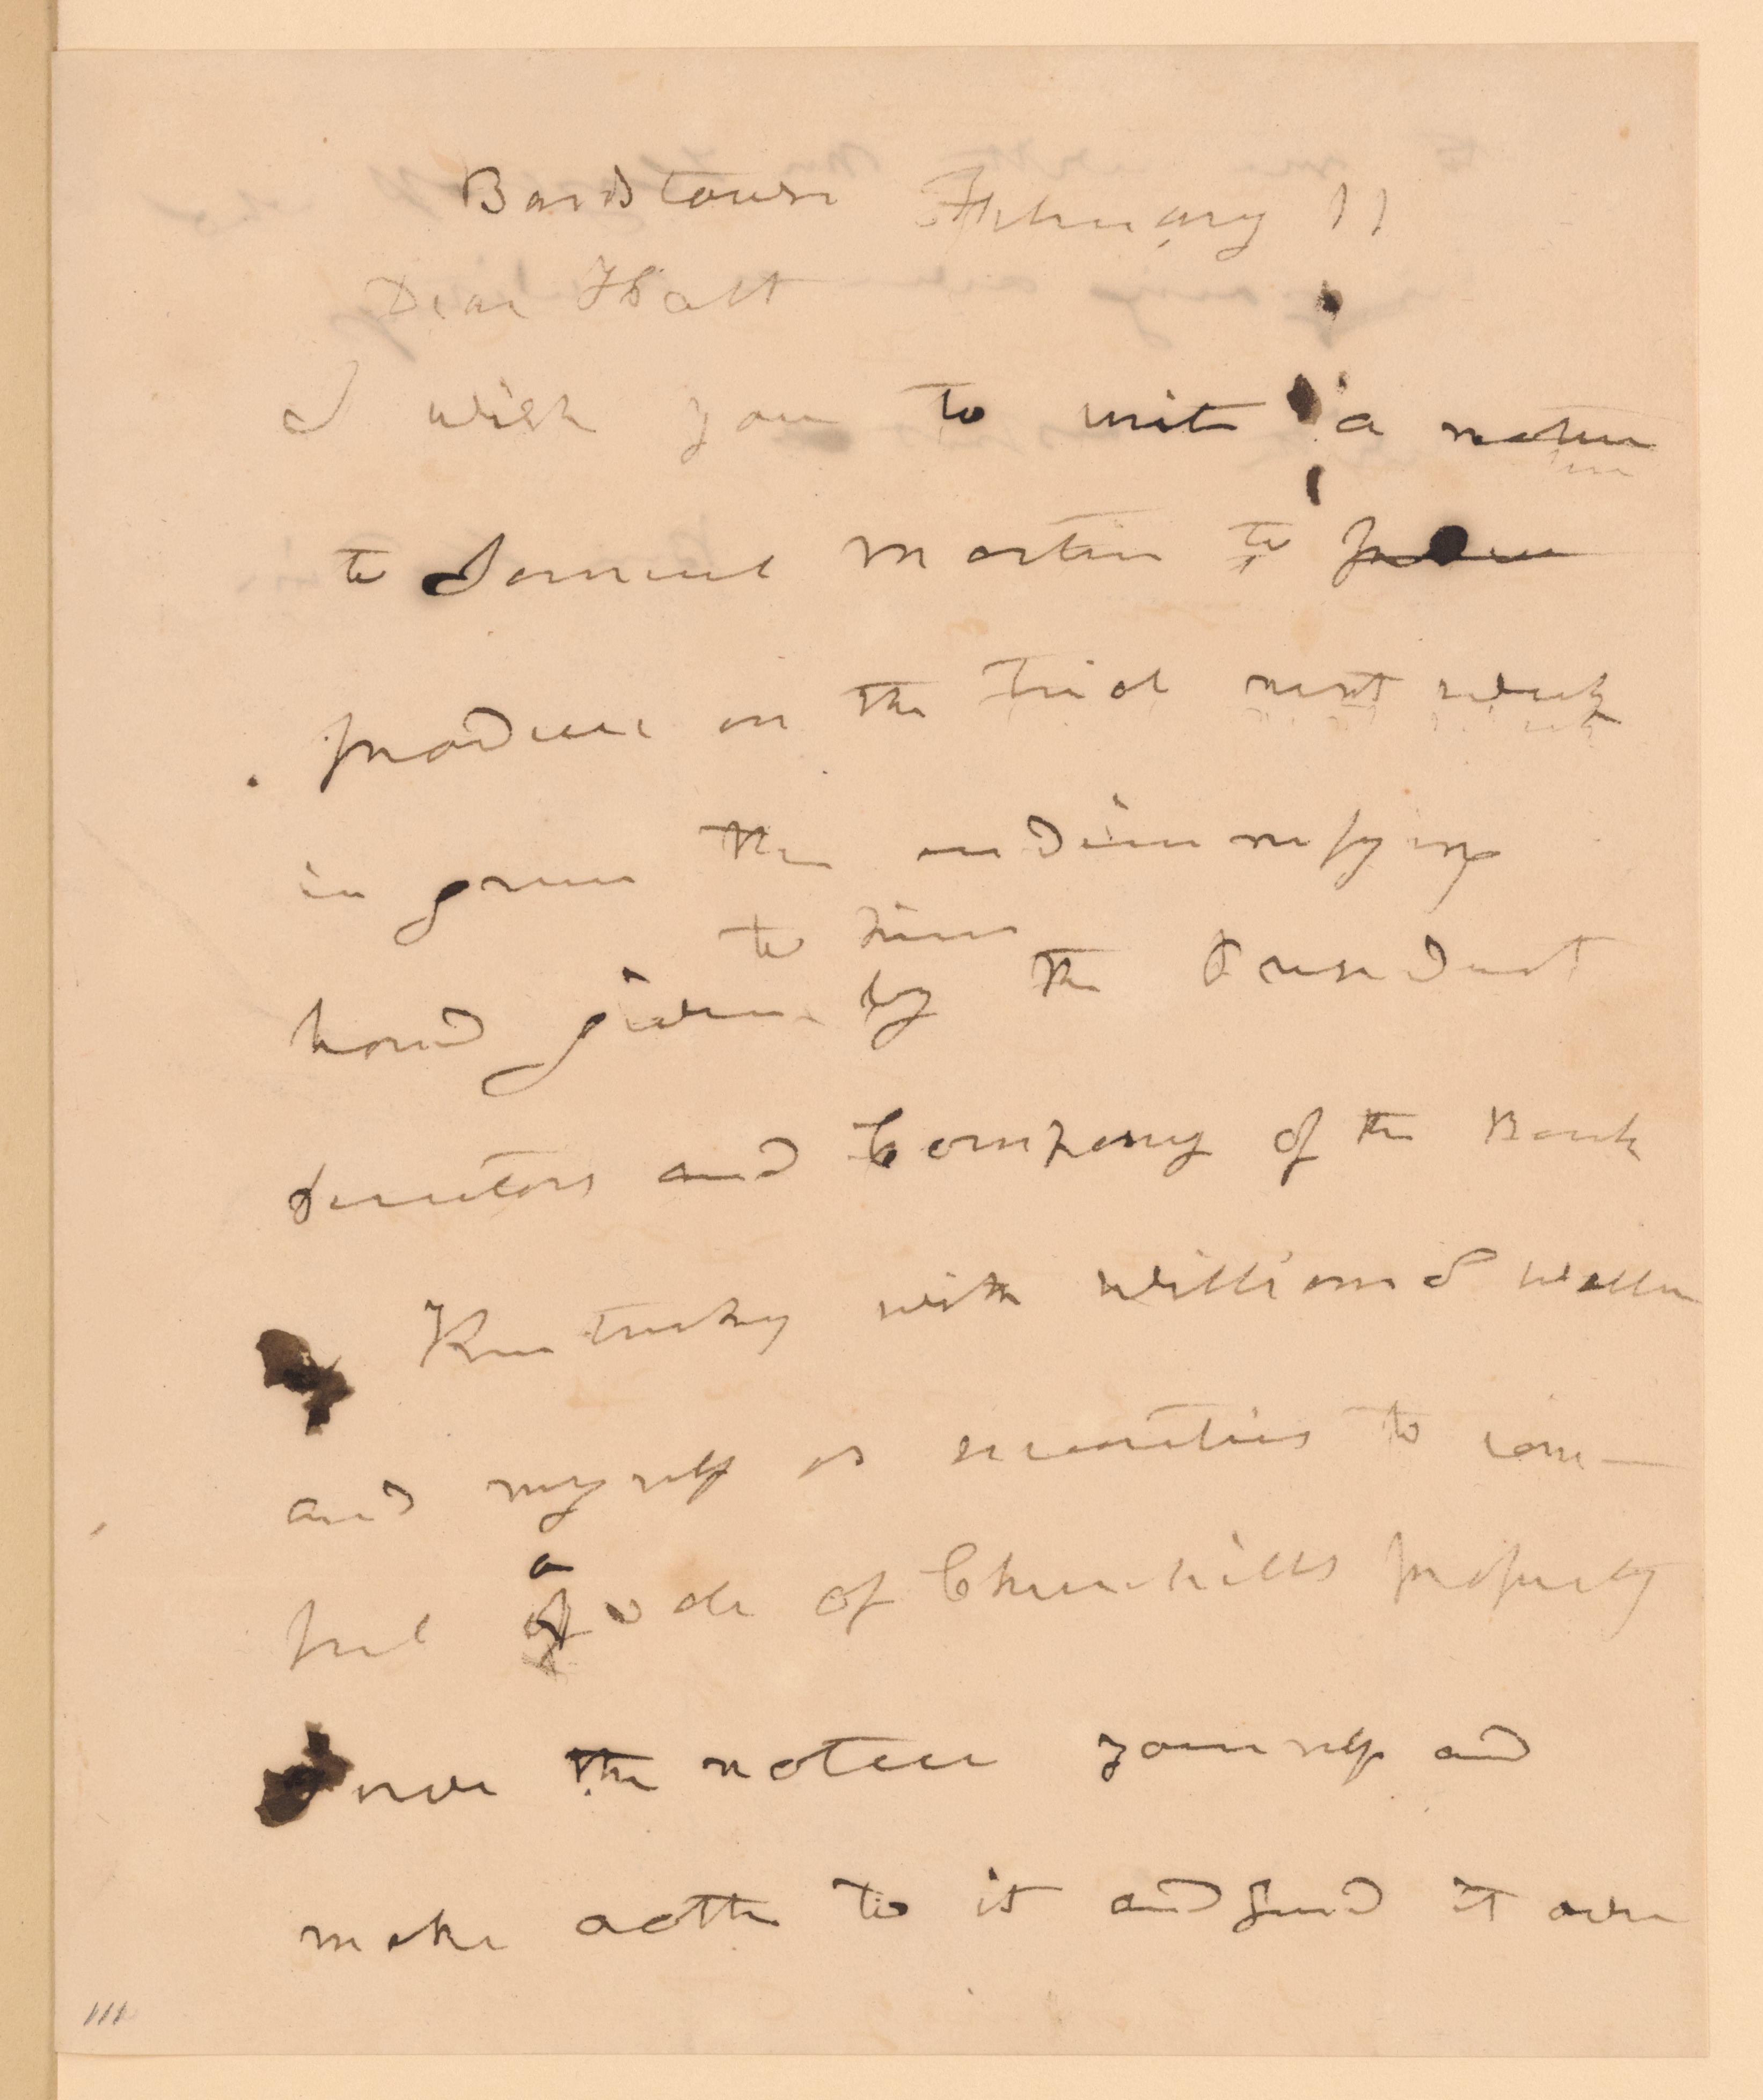 Bardstown February 11
Dear Holt
I wish you to write a notice
to Samuel Martin to
produce on the trial next week
in green the indemnifying
to him
bond given by the President
directors and Company of the Bank
Kentucky with William S Waller
and myself as securities to com-
pel a sale of Churchills property
the notice yourself and
make oath to it and send it over
111